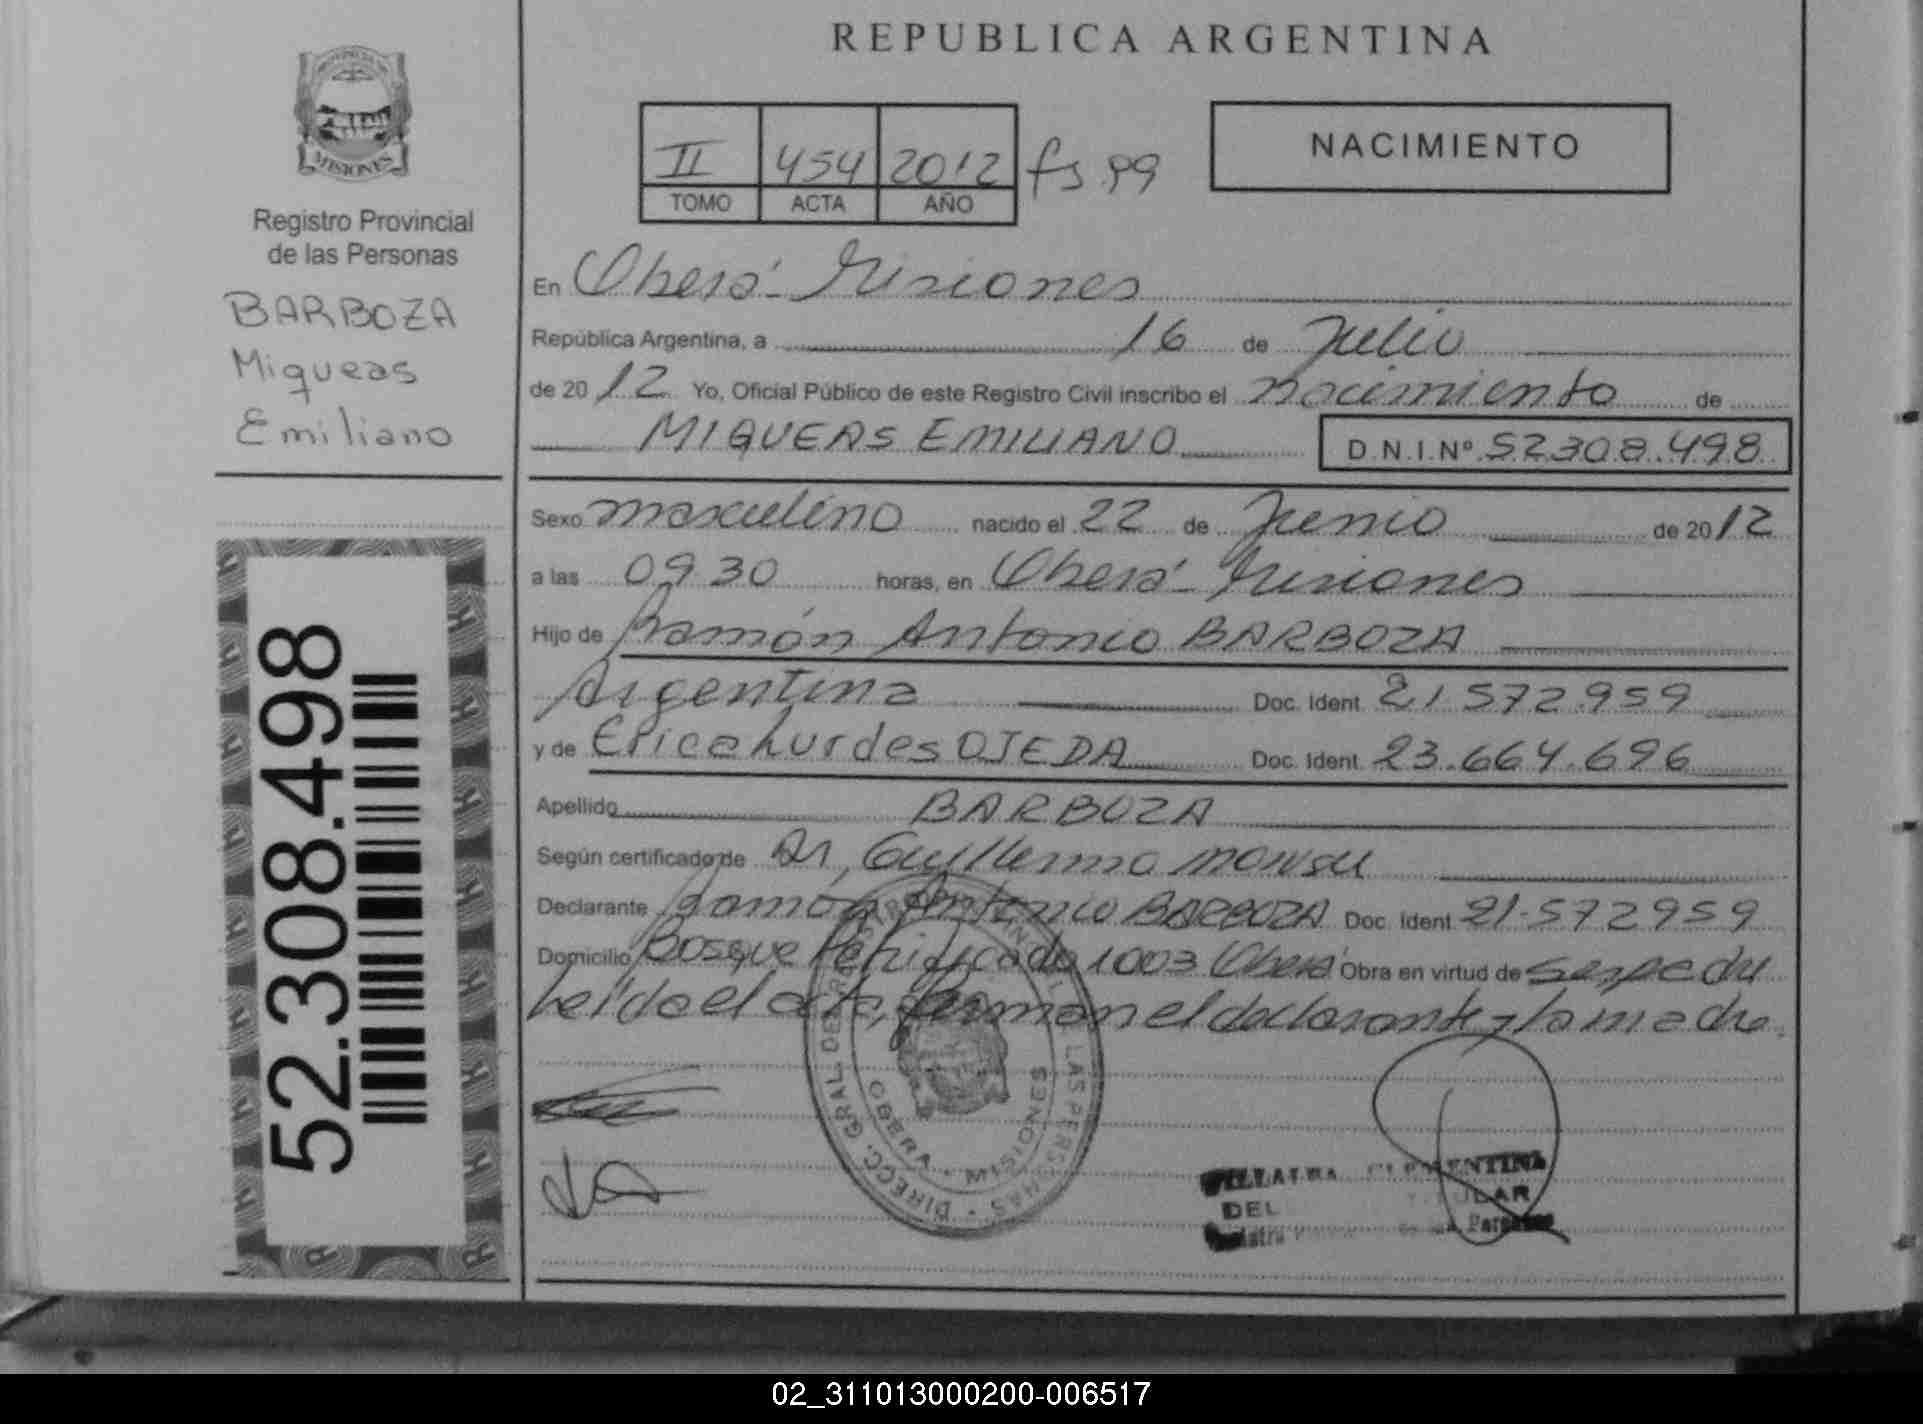 REPUBLICA ARGENTINA
PROVINCIA DE
MISIONES
Registro Provincial
de las Personas
BARBOZA
Miqueas
Emiliano
52.308.498
II 454 2012 fs 99
TOMO ACTA AÑO
NACIMIENTO
En Oberá - Misiones
República Argentina, a 16 de Julio
de 2012 Yo, Oficial Público de este Registro Civil inscribo el nacimiento de
MIQUEAS EMILIANO D.N.I.Nº 52.308.498
Sexo masculino nacido el 22 de Junio de 2012
a las 09 30 horas, en Oberá - Misiones
Hijo de Ramón Antonio BARBOZA
Argentina Doc. Ident. 21.572.959
y de Erica Lurdes OJEDA Doc. Ident. 23.664.696
Apellido BARBOZA
Según certificado de Dr, Guillermo
Declarante Ramón Antonio BARBOZA Doc. Ident. 21.572959
Domicilio Bosque Petrificado 1003 Oberá Obra en virtud de ser padre
Leída el acta, firman el declarante y la madre.
DIRECC. GRAL. DEL REGISTRO PROVINCIAL DE LAS PERSONAS
OBERA - MISIONES
VILLALBA CLEMENTINA
TITULAR
DEL
02_311013000200-006517